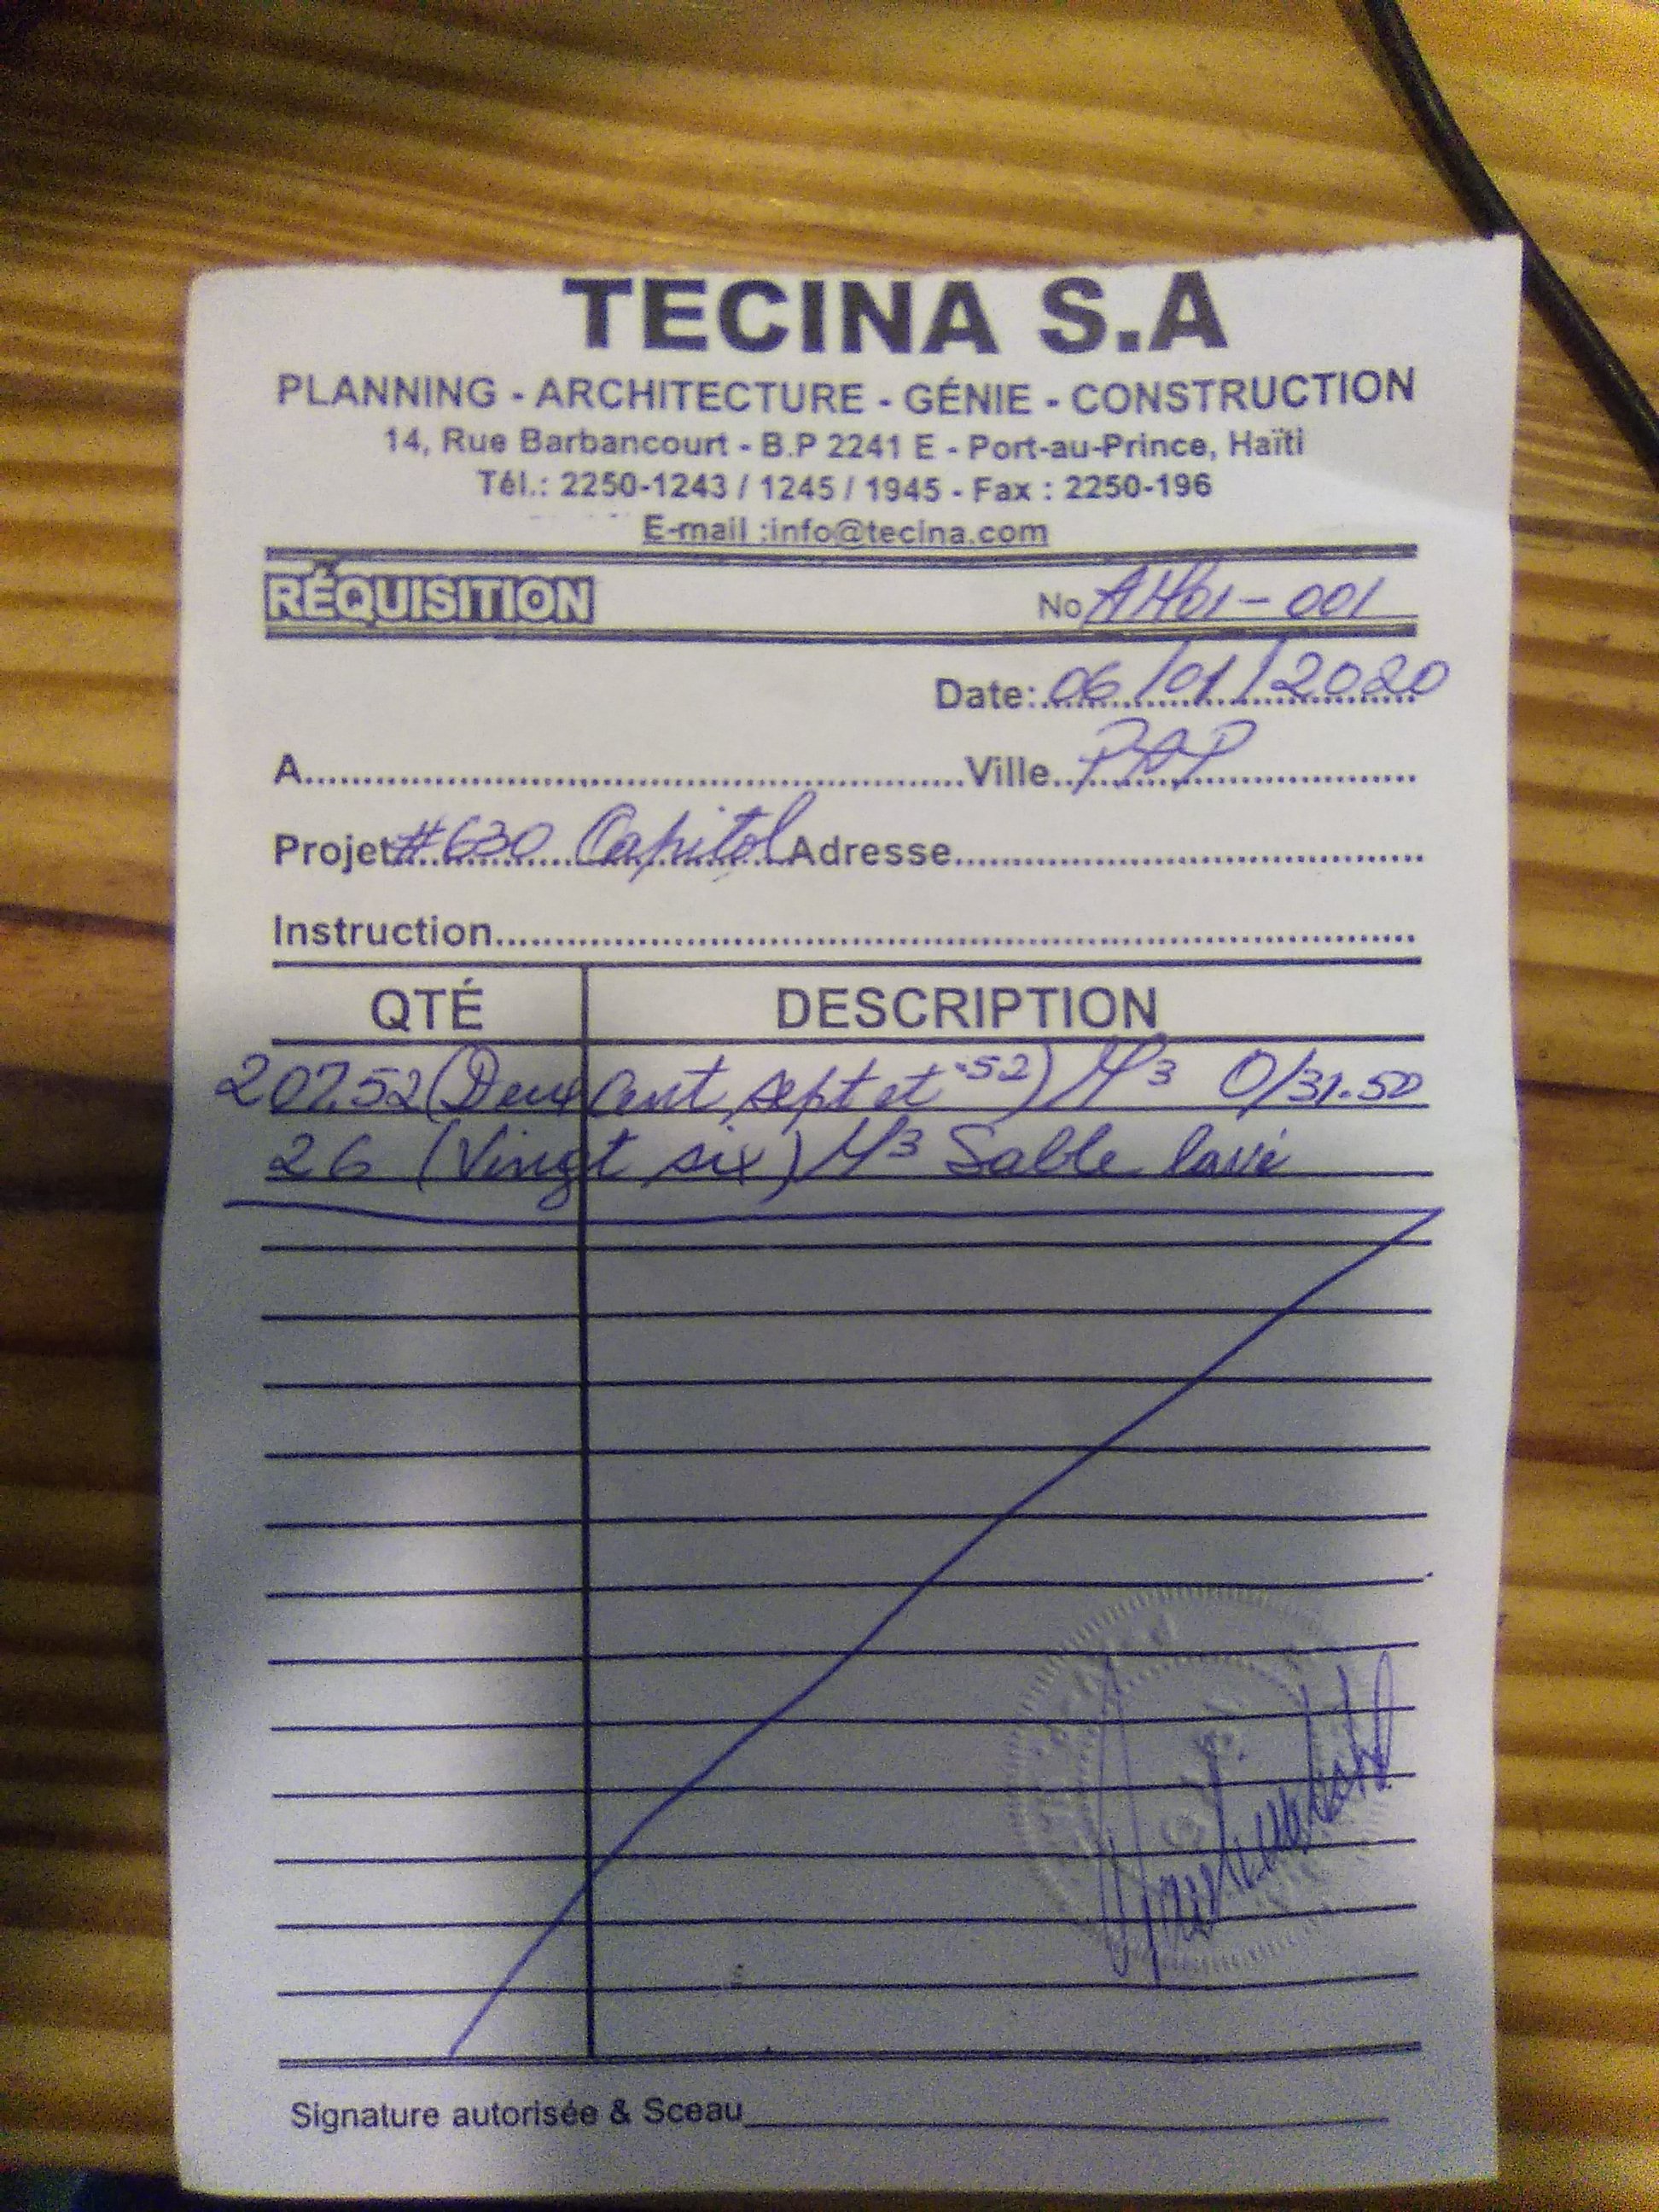 TECINA S.A
PLANNING - ARCHITECTURE - GÉNIE - CONSTRUCTION
14, Rue Barbancourt - B.P 2241 E - Port-au-Prince, Haïti
Tél.: 2250-1243 / 1245 / 1945 - Fax : 2250-196
E-mail :info@tecina.com
RÉQUISITION No AH01-001
Date: 06/01/2020
A Ville PAP
Projet #630 Capitol Adresse
Instruction
QTÉ DESCRIPTION
207.52 (Deux Cent sept et .52) M3 0/31.50
26 (Vingt six) M3 Sable lavé
Signature autorisée & Sceau